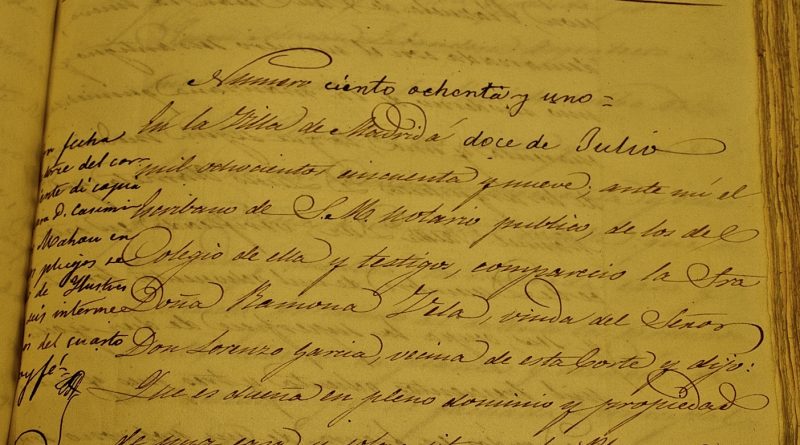 Numero ciento ochenta y uno=
En la Villa de Madrid á doce de Julio
mil ochocientos cincuenta y nueve; ante mi el
Escribano de S.M. Notario publico, de los del
Colegio de ella y testigos, comparecio la Sra
Doña Ramona Vela, viuda del Señor
Don Lorenzo Garcia, vecina de esta Corte y dijo:
Que es dueña en pleno dominio y propiedad
de una casa y
fecha
del cor-
di copia
D. Casimi
Mahou en
pliegos se
de Ilustres
interme
del cuarto
y fé=